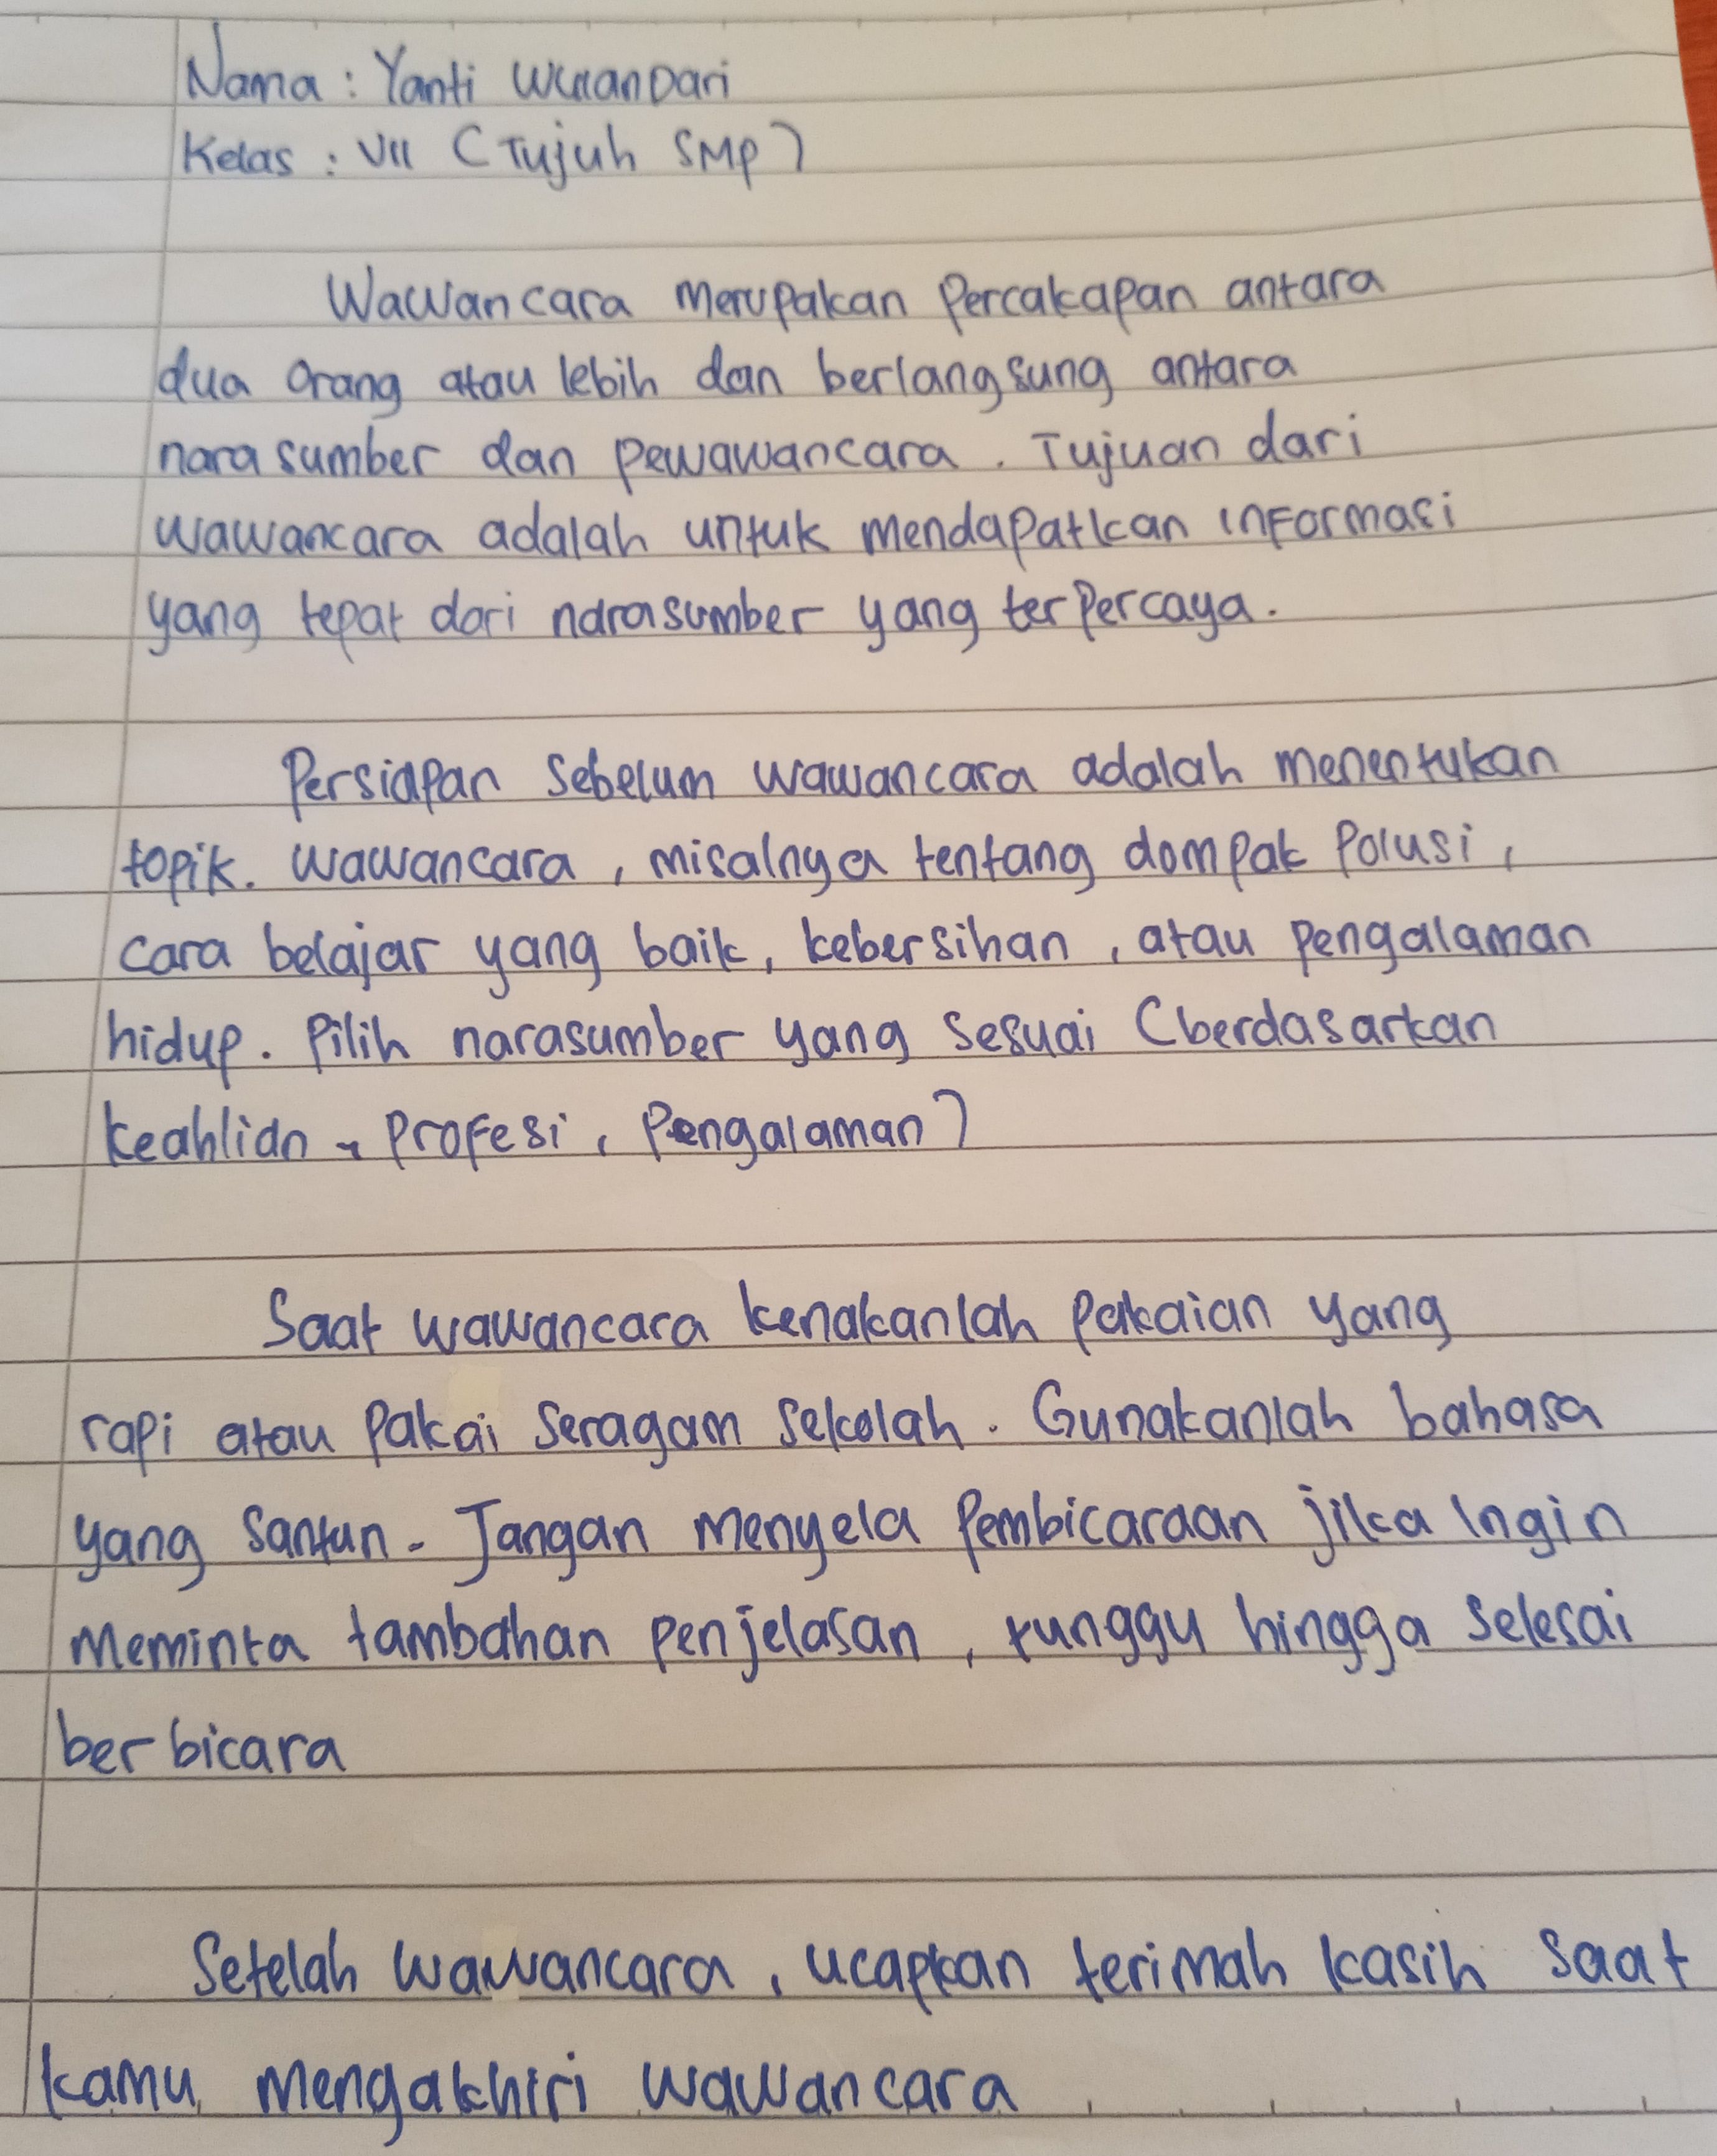 Nama : Yanti WulanDari
Kelas : VII (Tujuh SMP)
Wawancara merupakan Percakapan antara
dua orang atau lebih dan berlangsung antara
narasumber dan pewawancara. Tujuan dari
wawancara adalah untuk mendapatkan informasi
yang tepat dari narasumber yang terpercaya.
Persiapan sebelum wawancara adalah menentukan
topik. wawancara, misalnya tentang dampak Polusi,
cara belajar yang baik, kebersihan, atau pengalaman
hidup. Pilih narasumber yang sesuai (berdasarkan
keahlian, profesi, Pengalaman)
Saat wawancara kenakanlah pakaian yang
rapi atau pakai seragam sekolah. Gunakanlah bahasa
yang santun. Jangan menyela Pembicaraan jika ingin
meminta tambahan penjelasan, tunggu hingga selesai
berbicara
Setelah wawancara, ucapkan terimah kasih saat
kamu mengakhiri wawancara